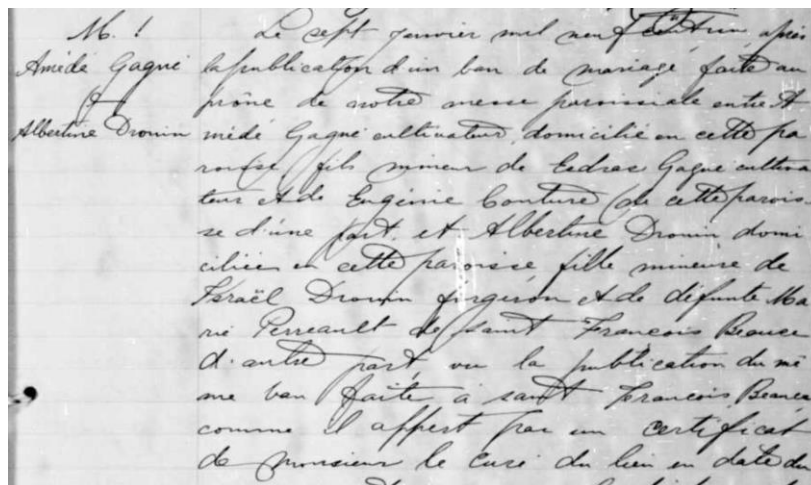 M. 1
Amédé Gagné
&
Albertine Drouin
Le sept janvier mil neuf cent un, après
la publication d'un ban de mariage, faite au
prône de notre messe paroissiale entre A
médé Gagné cultivateur, domicilié en cette pa
roisse, fils mineur de Esdras Gagné cultiva
teur et de Eugénie Couture de cette parois-
se d'une part, et Albertine Drouin domi
ciliée en cette paroisse, fille mineure de
Israël Drouin forgeron et de défunte Ma
rie Perreault de saint François Beauce
d'autre part, vu la publication du mê
me ban faite à saint François, Beauce,
comme il appert par un certificat
de monsieur le curé du lieu en date du